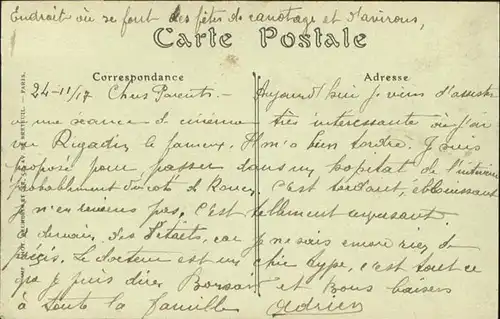 Endroit où se font des fêtes de canotage et d'avirons,
Carte Postale
Correspondance
Adresse
24-11/17 Chers Parents - Aujourd'hui je viens d'assister
à une séance de cinéma très intéressante où j'ai
vu Rigadin le fameux. Il m'a bien tordre. Je suis
proposé pour passer dans un hopital de l'intérieur
probablement du côté de Rouen. C'est tordant, éblouissant
je n'en reviens pas. C'est tellement
demain, des détails, car je ne sais encore rien de
précis. Le docteur est un chic type, c'est tout ce
que je puis dire. Bonsoir et Bons baisers
à toute la famille Adrien
PARIS.